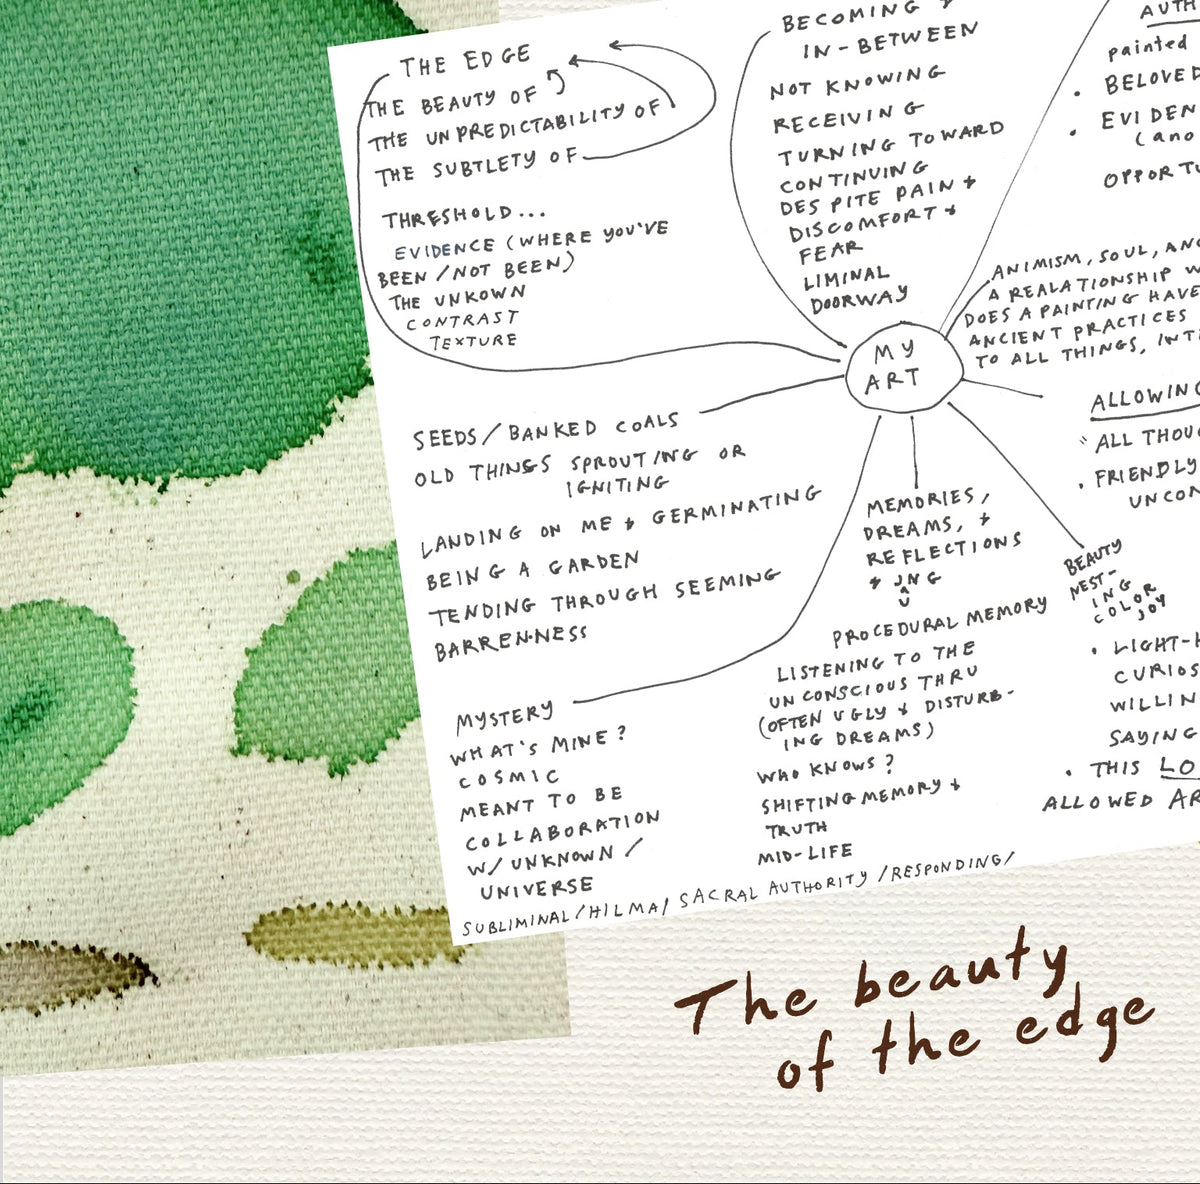 THE EDGE
THE BEAUTY OF
THE UNPREDICTABILITY OF
THE SUBTLETY OF
THRESHOLD...
EVIDENCE (WHERE YOU'VE
BEEN / NOT BEEN)
THE UNKOWN
CONTRAST
TEXTURE
BECOMING +
IN-BETWEEN
NOT KNOWING
RECEIVING
TURNING TOWARD
CONTINUING
DESPITE PAIN +
DISCOMFORT +
FEAR
LIMINAL
DOORWAY
AUTH
painted
• BELOVED
• EVIDEN
(ano
OPPORTU
ANIMISM, SOUL, ANC
A REALATIONSHIP W
DOES A PAINTING HAVE
ANCIENT PRACTICES
TO ALL THINGS, INTI
MY
ART
SEEDS / BANKED COALS
OLD THINGS SPROUTING OR
IGNITING
LANDING ON ME + GERMINATING
BEING A GARDEN
TENDING THROUGH SEEMING
BARRENNESS
MYSTERY
WHAT'S MINE?
COSMIC
MEANT TO BE
COLLABORATION
W/ UNKNOWN /
UNIVERSE
MEMORIES,
DREAMS, +
REFLECTIONS
+ JNG
^
U
PROCEDURAL MEMORY
LISTENING TO THE
UNCONSCIOUS THRU
(OFTEN UGLY + DISTURB-
ING DREAMS)
WHO KNOWS?
SHIFTING MEMORY +
TRUTH
MID-LIFE
ALLOWING
"ALL THOUG
• FRIENDLY
UNCON
BEAUTY
NEST-
ING
COLOR
JOY
• LIGHT-H
CURIOS
WILLIN
SAYING
• THIS LO
ALLOWED AR
SUBLIMINAL / HILMA / SACRAL AUTHORITY / RESPONDING /
The beauty
of the edge